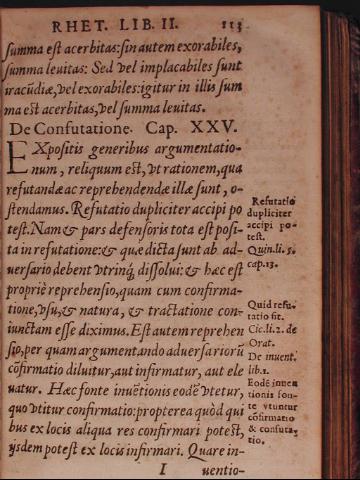 RHET. LIB. II. 113
summa est acerbitas: sin autem exorabiles,
summa leuitas: Sed vel implacabiles sunt
iracūdiæ, vel exorabiles: igitur in illis sum
ma est acerbitas, vel summa leuitas.
De Confutatione. Cap. XXV.
EXpositis generibus argumentatio-
num, reliquum est, vt rationem, qua
refutandæ ac reprehendendæ illæ sunt, o-
stendamus. Refutatio dupliciter accipi po
test. Nam & pars defensoris tota est posi-
ta in refutatione: & quæ dicta sunt ab ad-
uersario debent vtrinq; dissolui: & hæc est
propriè reprehensio, quam cum confirma-
tione, vsu, & natura, & tractatione con-
iunctam esse diximus. Est autem reprehen
sio, per quam argumentando aduersariorū
cōfirmatio diluitur, aut infirmatur, aut ele
uatur. Hæc fonte inuētionis eodē vtetur,
quo vtitur confirmatio: propterea quòd qui
bus ex locis aliqua res confirmari potest,
ijsdem potest ex locis infirmari. Quare in-
I uentio-
Refutatio
dupliciter
accipi po-
test.
Quin. li. 5.
cap. 13.
Quid refu-
tatio sit.
Cic. li. 2. de
Orat.
De inuent.
lib. 1.
Eodē inuen
tionis fon-
te vtuntur
cōfirmatio
& confuta-
tio.